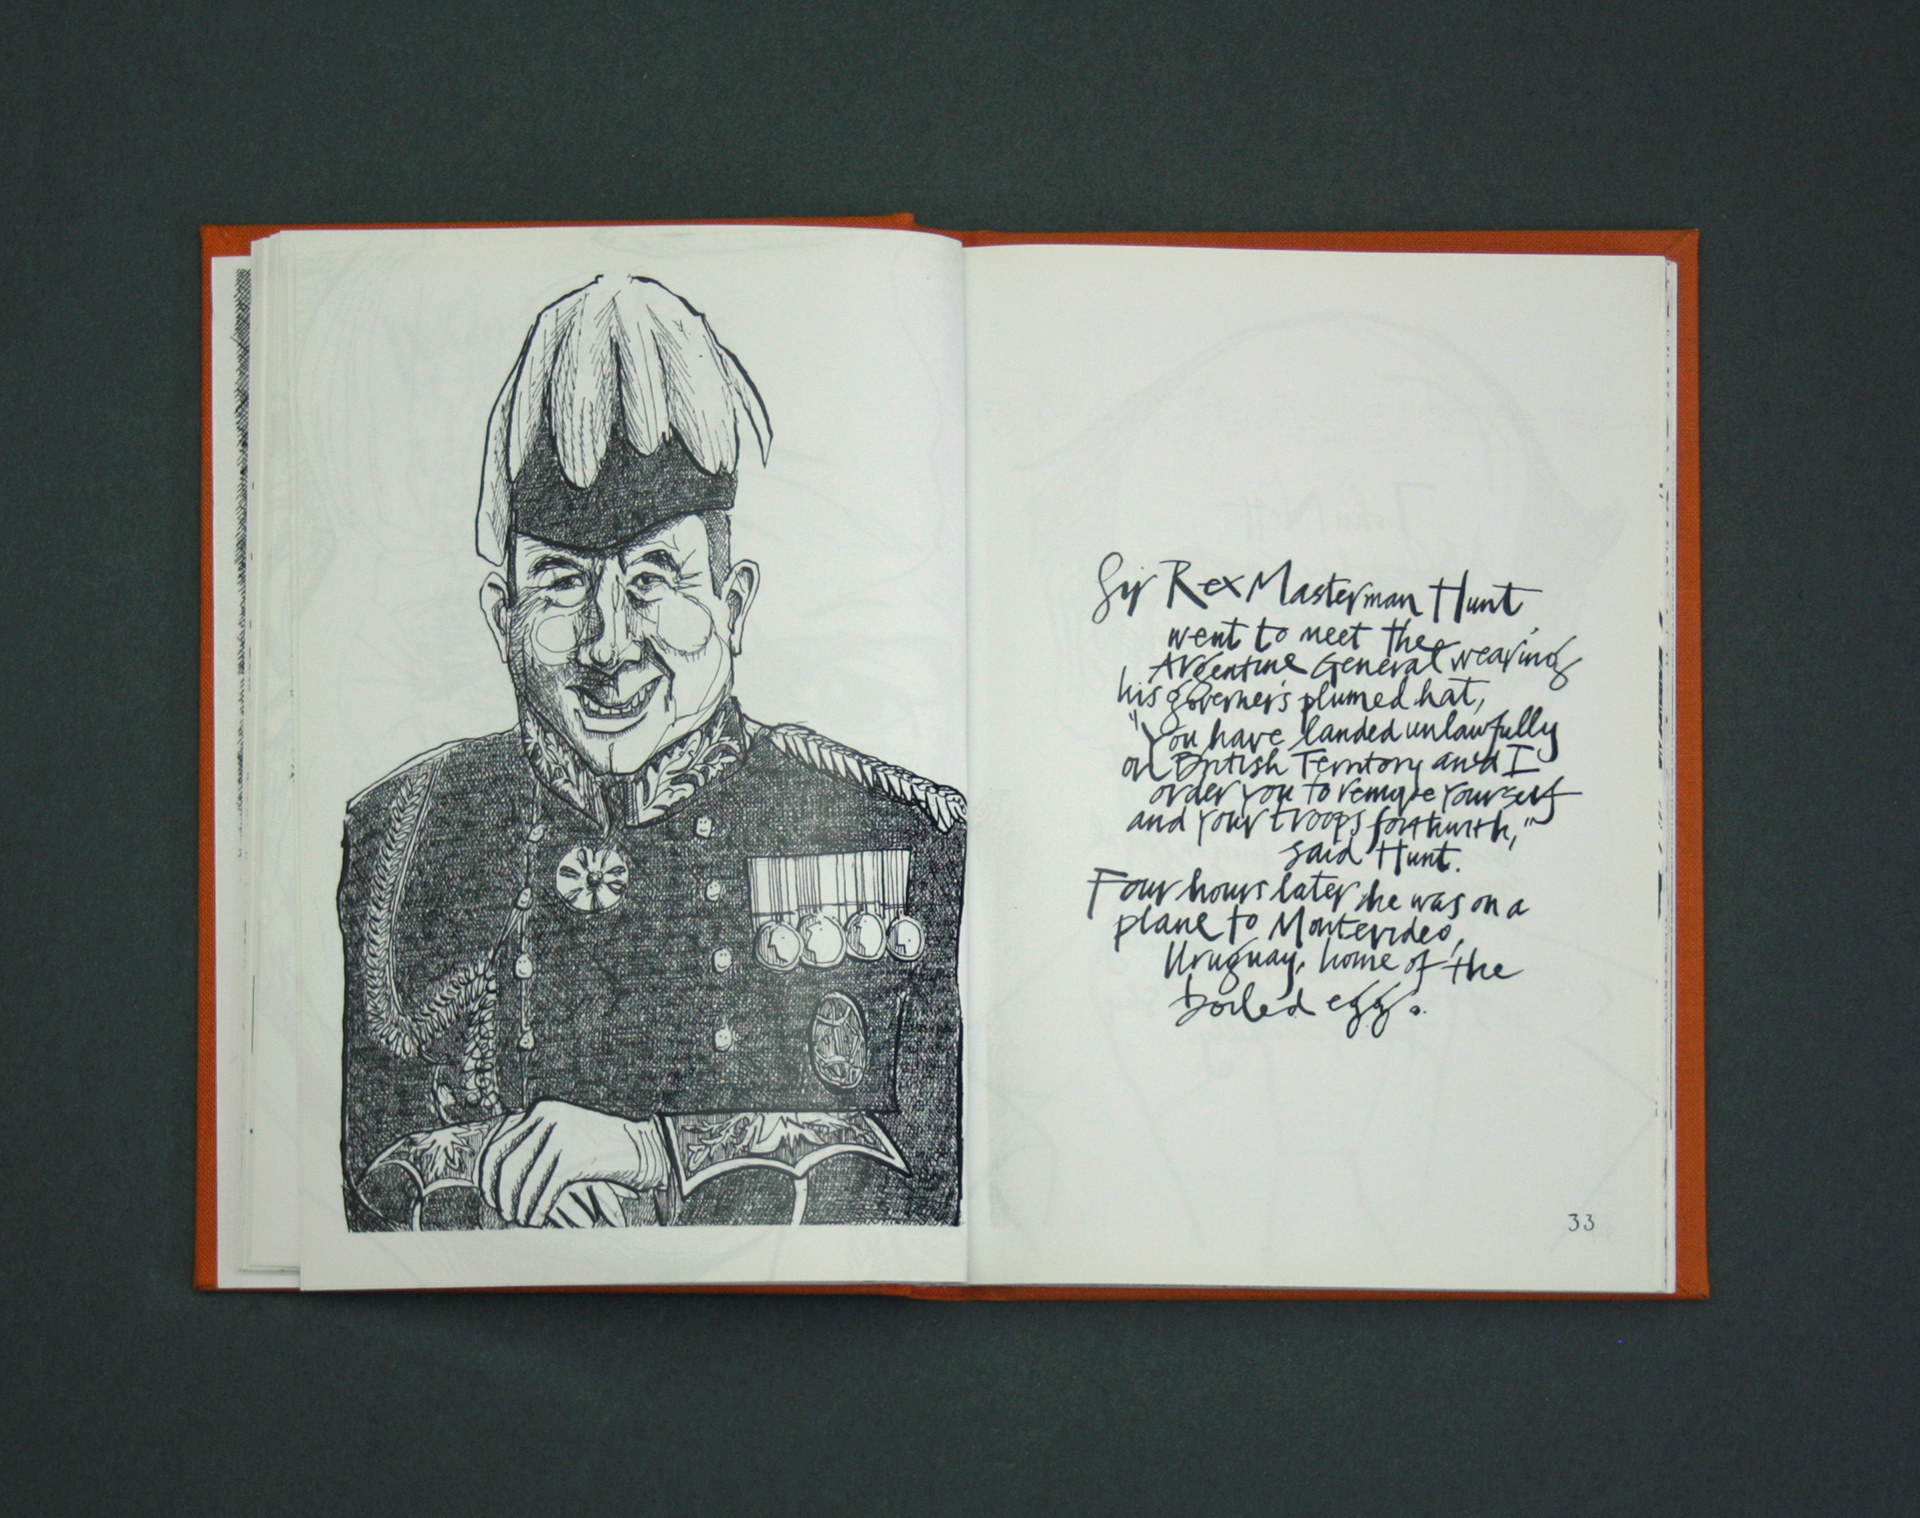 Sir Rex Masterman Hunt
went to meet the
Argentine General wearing
his governer's plumed hat,
"You have landed unlawfully
on British Territory and I
order you to remove yourself
and your troops forthwith,"
said Hunt.
Four hours later he was on a
plane to Montevideo,
Uruguay, home of the
boiled egg.
33